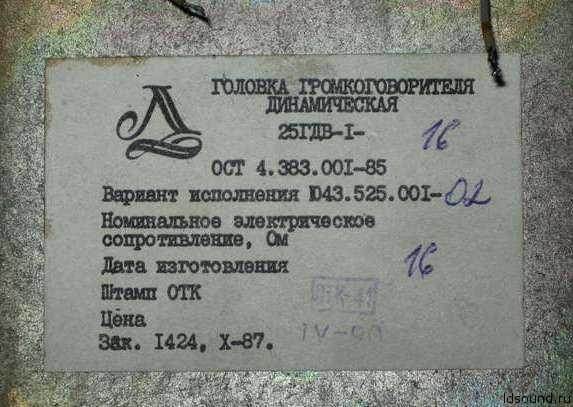 ГОЛОВКА ГРОМКОГОВОРИТЕЛЯ
ДИНАМИЧЕСКАЯ
25ГДВ-I- 16
ОСТ 4.383.00I-85
Вариант исполнения Ю43.525.00I-02
Номинальное электрическое
сопротивление, Ом
16
Дата изготовления
Штамп ОТК
Цена
Зак. I424, X-87.
ldsound.ru